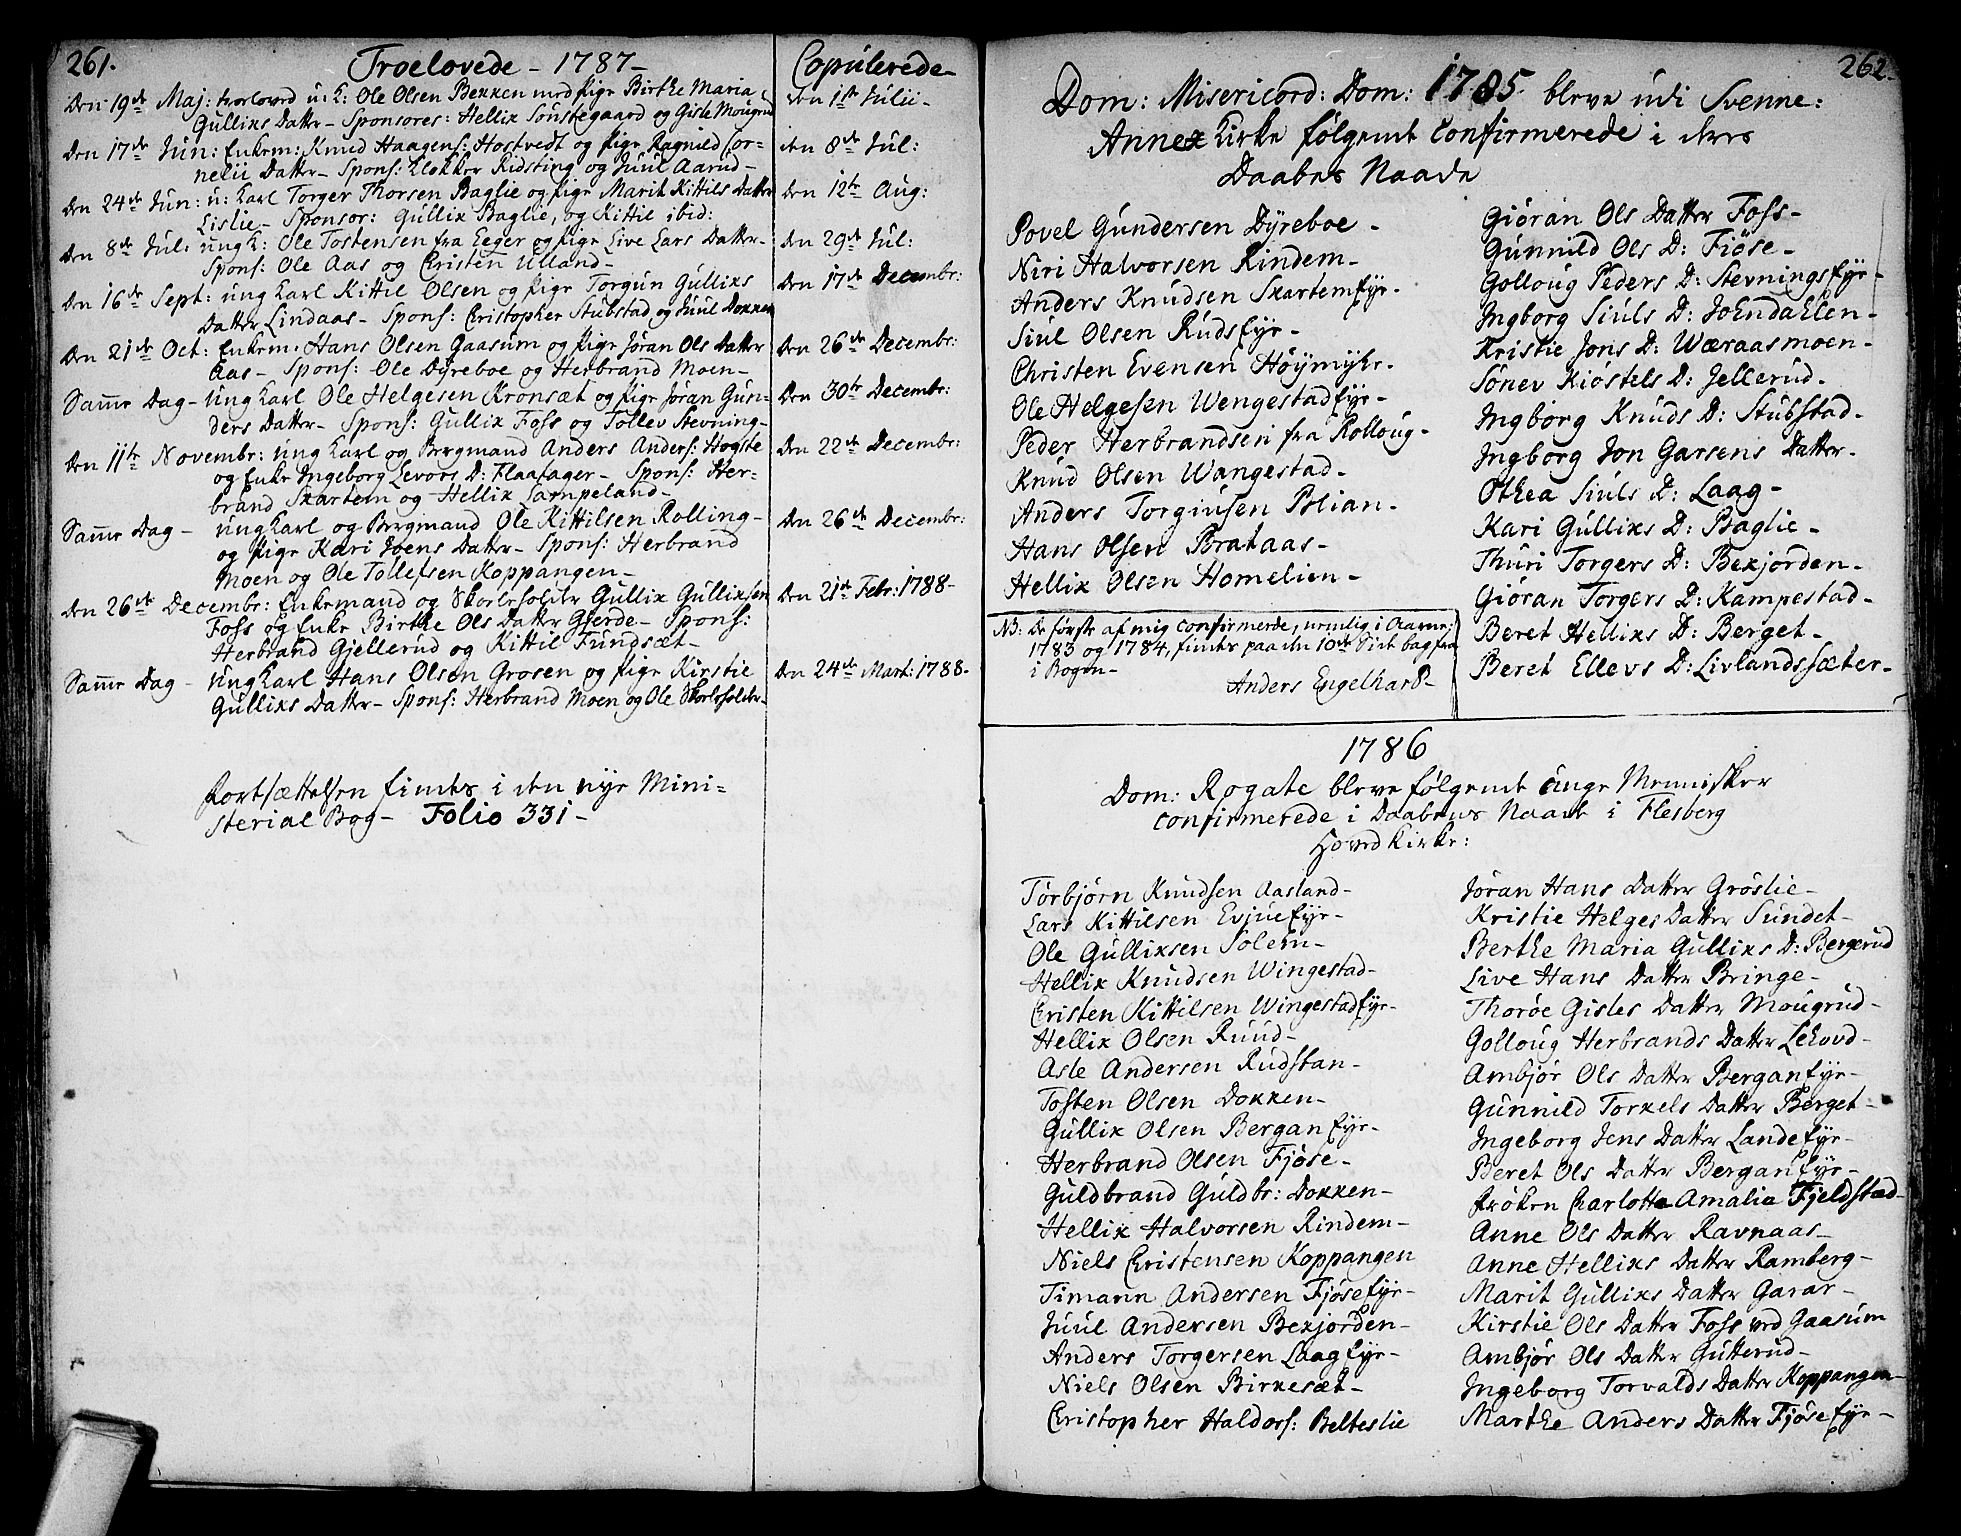 261.
Troelovede - 1787-
Copulerede-
Den 19de Maj: troeloved u: K: Ole Olsen Bekken med Pige Birthe Maria
Gulliks Datter- Sponsores: Hellik Sönstegaard og Gisle Mougrud
den 1ste Julii-
Den 17de Jun: Enkem: Knud Haagens: Hostvedt og Pige Ragnild Cor-
nelii Datter- Spons: Klokker Ridsting og Juul Aarud-
den 8de Jul:
Den 24de Jun: u: Karl Torger Thorsen Baglie og Pige Marit Kittils Datter
Lislie- Sponsor: Gullix Baglie, og Kittil ibid:
Den 12te Aug:
Den 8de Jul: ung K: Ole Tostensen fra Eeger og Pige Live Lars Datter-
Spons: Ole Aas og Cristen Ulland-
Den 29de Jul:
Den 16de Sept: ung Karl Kittil Olsen og Pige Torgun Gulliks
Datter Lindaas- Spons: Cristopher Stubstad og Juul Dokken
Den 17de Decembr:
Den 21de Oct: Enkem: Hans Olsen Gaasum og Pige Jöran Ols Datter
Aas- Spons: Ole Dyreboe og Herbrand Moen-
Den 26de Decembr:
Samme Dag- Ung Karl Ole Helgesen Kronsæt og Pige Jöran Gun-
ders Datter- Spons: Gullix Foss og Tollev Stevning-
Den 30te Decembr:
Den 11te Novembr: ung Karl og Bergmand Anders Anders: Hogste
og Enke Ingeborg Levors D: Flaatager- Spons: Her-
brand Skartem og Hellix Lampeland-
Den 22de Decembr:
Samme Dag- ung Karl og Bergmand Ole Kittilsen Rolling-
og Pige Kari Joens Datter- Spons: Herbrand
Moen og Ole Tollefsen Koppangen-
Den 26de Decembr:
Den 26de Decembr: Enkemand og Skoleholder Gullix Gulliksen
Foss og Enke Birthe Ols Datter Gjerde- Spons:
Herbrand Gjellerud og Kittil Fundsæt-
Den 21de Febr: 1788-
Samme Dag- Ung Karl Hans Olsen Grosen og Pige Kirstie
Gulliks Datter- Spons: Herbrand Moen og Ole Skoleholder-
Den 24de Mart: 1788-
Fortsættelsen findes i den nye Mini=
sterial Bog- Folio 331-
262.
Dom: Misericord: Dom: 1785. bleve udi Svenne:
Annex Kirke følgende Confirmerede i deres
Daabes Naade
Povel Gundersen Dyreboe -
Niri Halvorsen Rindem-
Anders Knudsen Skartemfyr-
Siul Olsen Rudsfyr-
Christen Evensen Höymyhr-
Ole Helgesen Wengestadfyr-
Peder Herbrandsen fra Rolloug-
Knud Olsen Wangestad-
Anders Torgiusen Polian-
Hans Olsen Brataas-
Hellix Olsen Homelien-
Giöran Ols Datter Foss-
Gunnild Ols D: Fiöse-
Golloug Peders D: Stevningsfyr-
Ingborg Siuls D: Johndahlen-
Kristie Jons D: Wæraasmoen-
Sönev Kiöstels D: Jellerud-
Ingborg Knuds D: Stubstad-
Ingborg Jon Garsens Datter-
Othea Siuls D: Laag-
Kari Gulliks D: Baglie-
Thuri Torgers D: Bekjorden-
Giöran Torgers D: Kampestad-
Beret Helliks D: Berget-
Beret Ellevs D: Livlandssæter-
NB: De første af mig confirmerede, nemlig i Aarene
1783 og 1784, findes paa den 10de Side bag fra
i Bogen-
Anders Engelhart-
1786
Dom: Rogate bleve følgende unge Mennisker
confirmerede i Daabens Naade i Flesberg
Hoved Kirke:
Törbjörn Knudsen Aasland-
Lars Kittilsen Evjuefyr-
Ole Gulliksen Solem-
Hellix Knudsen Wingestad-
Cristen Kittilsen Wingestadfyr-
Hellix Olsen Ruud-
Asle Andersen Rudstan-
Tosten Olsen Dokken-
Gullix Olsen Berganfyr-
Herbrand Olsen Fjöse-
Guldbrand Guldbr: Dokken-
Hellix Halvorsen Rindem-
Niels Cristensen Koppangen
Timann Andersen Fjösefyr-
Juul Andersen Bekjorden-
Anders Torgersen Laagfyr-
Niels Olsen Birkesæt-
Cristopher Haldors: Belteslie
Jöran Hans Datter Gröslie-
Kristie Helges Datter Sundet-
Berthe Maria Gulliks D: Bergerud
Live Hans Datter Bringe-
Thoröe Gisles Datter Mougrud-
Golloug Herbrands Datter Lehovd-
Ambjör Ols Datter Berganfyr-
Gunnild Torkels Datter Berget-
Ingeborg Jens Datter Landefyr-
Beret Ols Datter Berganfyr-
Fröken Charlotte Amalia Fjeldstad-
Anne Ols Datter Ravnaas-
Anne Helliks Datter Ramberg-
Marit Gulliks Datter Garar-
Kirstie Ols Datter Foss ved Gaasum
Ambjör Ols Datter Gutterud-
Ingeborg Torvalds Datter Koppangen-
Marthe Anders Datter Fjösefyr-